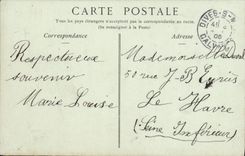 CARTE POSTALE
Tous les pays étrangers n'acceptent pas la correspondance au recto.
(Se renseigner à la Poste)
Correspondance
Adresse
DIVES-S-M
CALVADOS
Respectueux
souvenir
Marie Louise
Mademoiselle
50 rue J-B Eyriès
Le Havre
(Seine Inférieure)